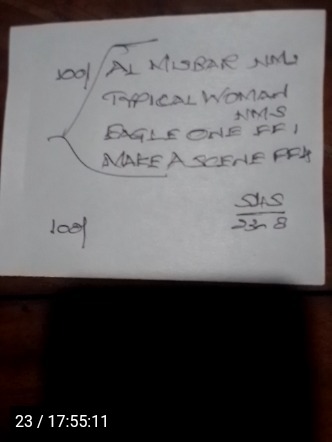 100/ AL MISBAR NMS
TYPICAL WOMAN
NMS
EAGLE ONE FF1
MAKE A SCENE FF4
100/
23 / 17:55:11